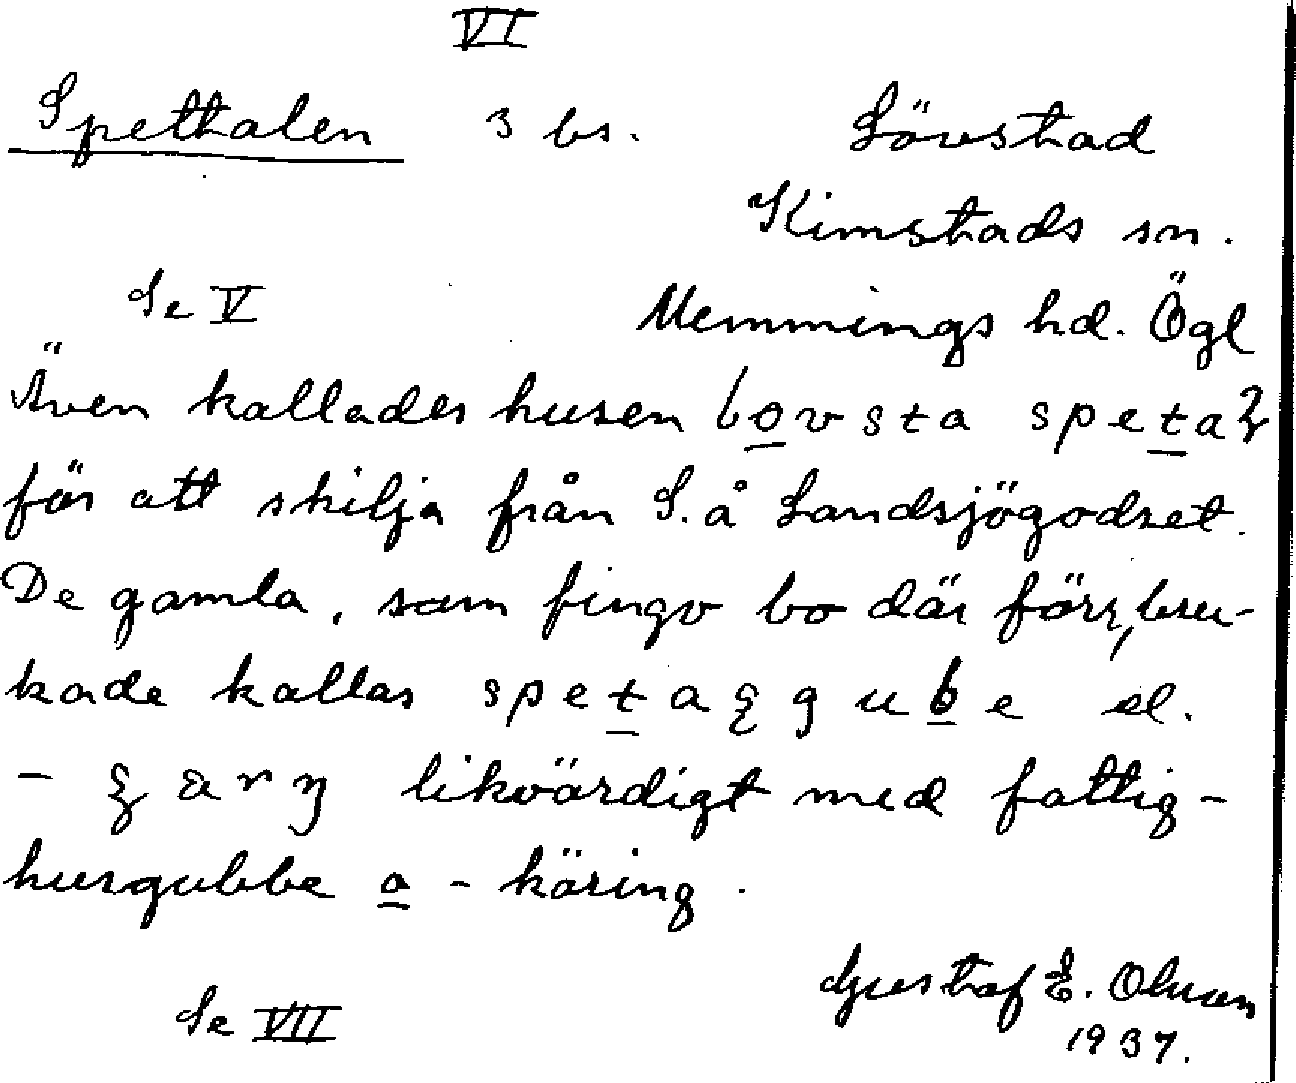 VI
Spettalen 3 bs. Lövstad
Kimstads sn.
Se V Memmings hd. Ögl
Även kallades husen
för att skilja från S. å Landsjögodset.
De gamla, som fingo bo där förr, bru-
kade kallas el.
- likvärdigt med fattig-
husgubbe o - käring.
Gustaf E. Olsson
Se VII 1937.